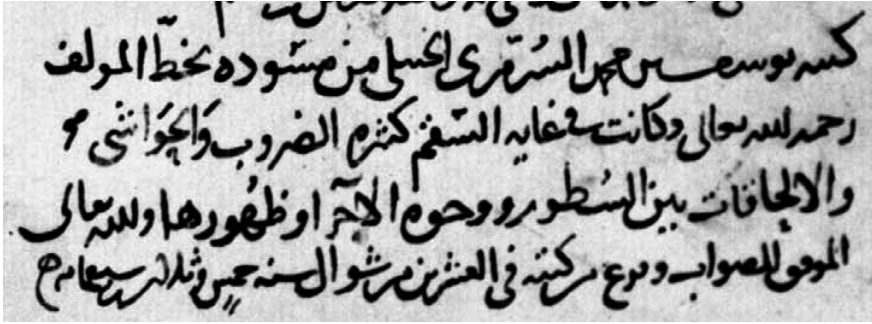 كتبه يوسف بن محمد السرمري الحنبلي من مسوده بخط المولف
رحمه الله تعالى وكانت في غايه السقم كثيره الضروب والحواشي
والالحاقات بين السطور ووجوه الاجزا وظهورها والله تعالى
الموفق للصواب وفرغ من كتبته في العشرين من شوال سنه خمس وثلاثين وسبعمايه